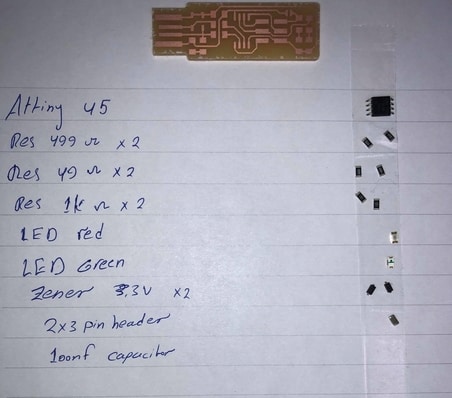 Attiny 45
Res 499 Ω x2
Res 49 Ω x2
Res 1k Ω x2
LED red
LED Green
Zener 3.3V x2
2x3 pin header
100nf capacitor